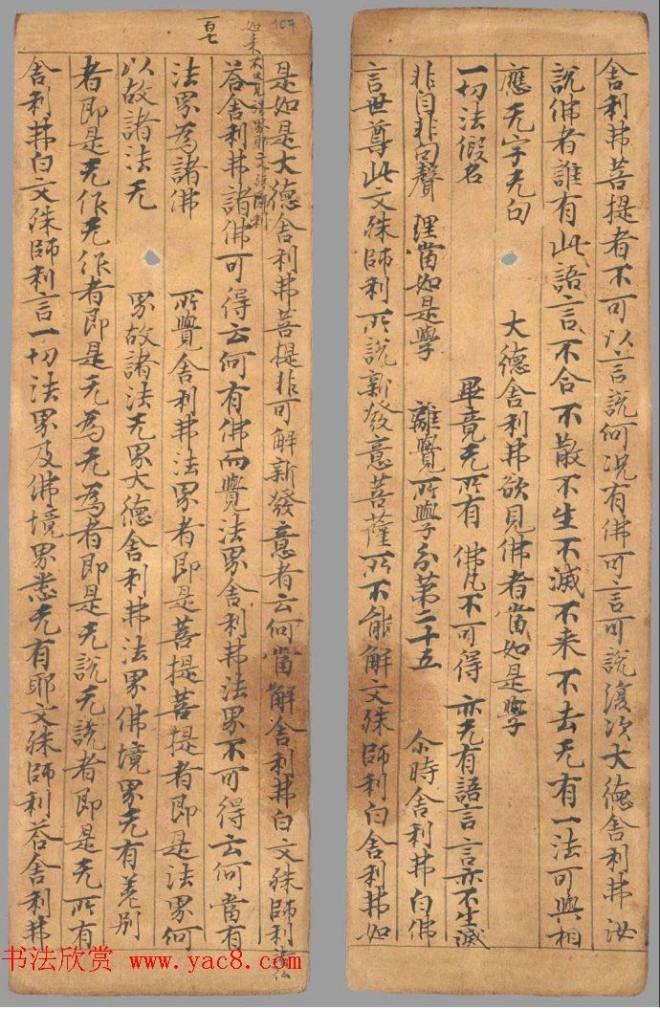 舍利弗菩提者不可以言說何況有佛可言可說復次大德舍利弗汝
說佛者誰有此語言不合不散不生不滅不来不去无有一法可與相
應无字无句 大德舍利弗欲見佛者當如是學
一切法假名 畢竟无所有 佛凡不可得 亦无有語言 言亦不生滅
非自非句聲 理當如是學 離覺所學 分第二十五 尒時舍利弗白佛
言世尊此文殊師利所說新發意菩薩所不能解文殊師利白舍利弗如
107
百七
是如是大德舍利弗菩提非可解新發意者云何當解舍利弗白文殊師利
如来不覺諸法界耶文殊師利
荅舍利弗諸佛可得云何有佛而覺法界舍利弗法界不可得云何當有
法界為諸佛 所覺舍利弗法界者即是菩提菩提者即是法界何
以故諸法无 界故諸法无界大德舍利弗法界佛境界无有差別
者即是无作无作者即是无為无為者即是无說无說者即是无所有
舍利弗白文殊師利言一切法界及佛境界悉无有耶文殊師利荅舍利弗
书法欣赏 www.yac8.com